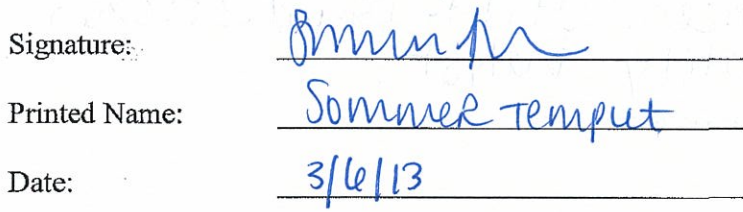 Signature:
Printed Name: Sommer Temput
Date: 3/6/13